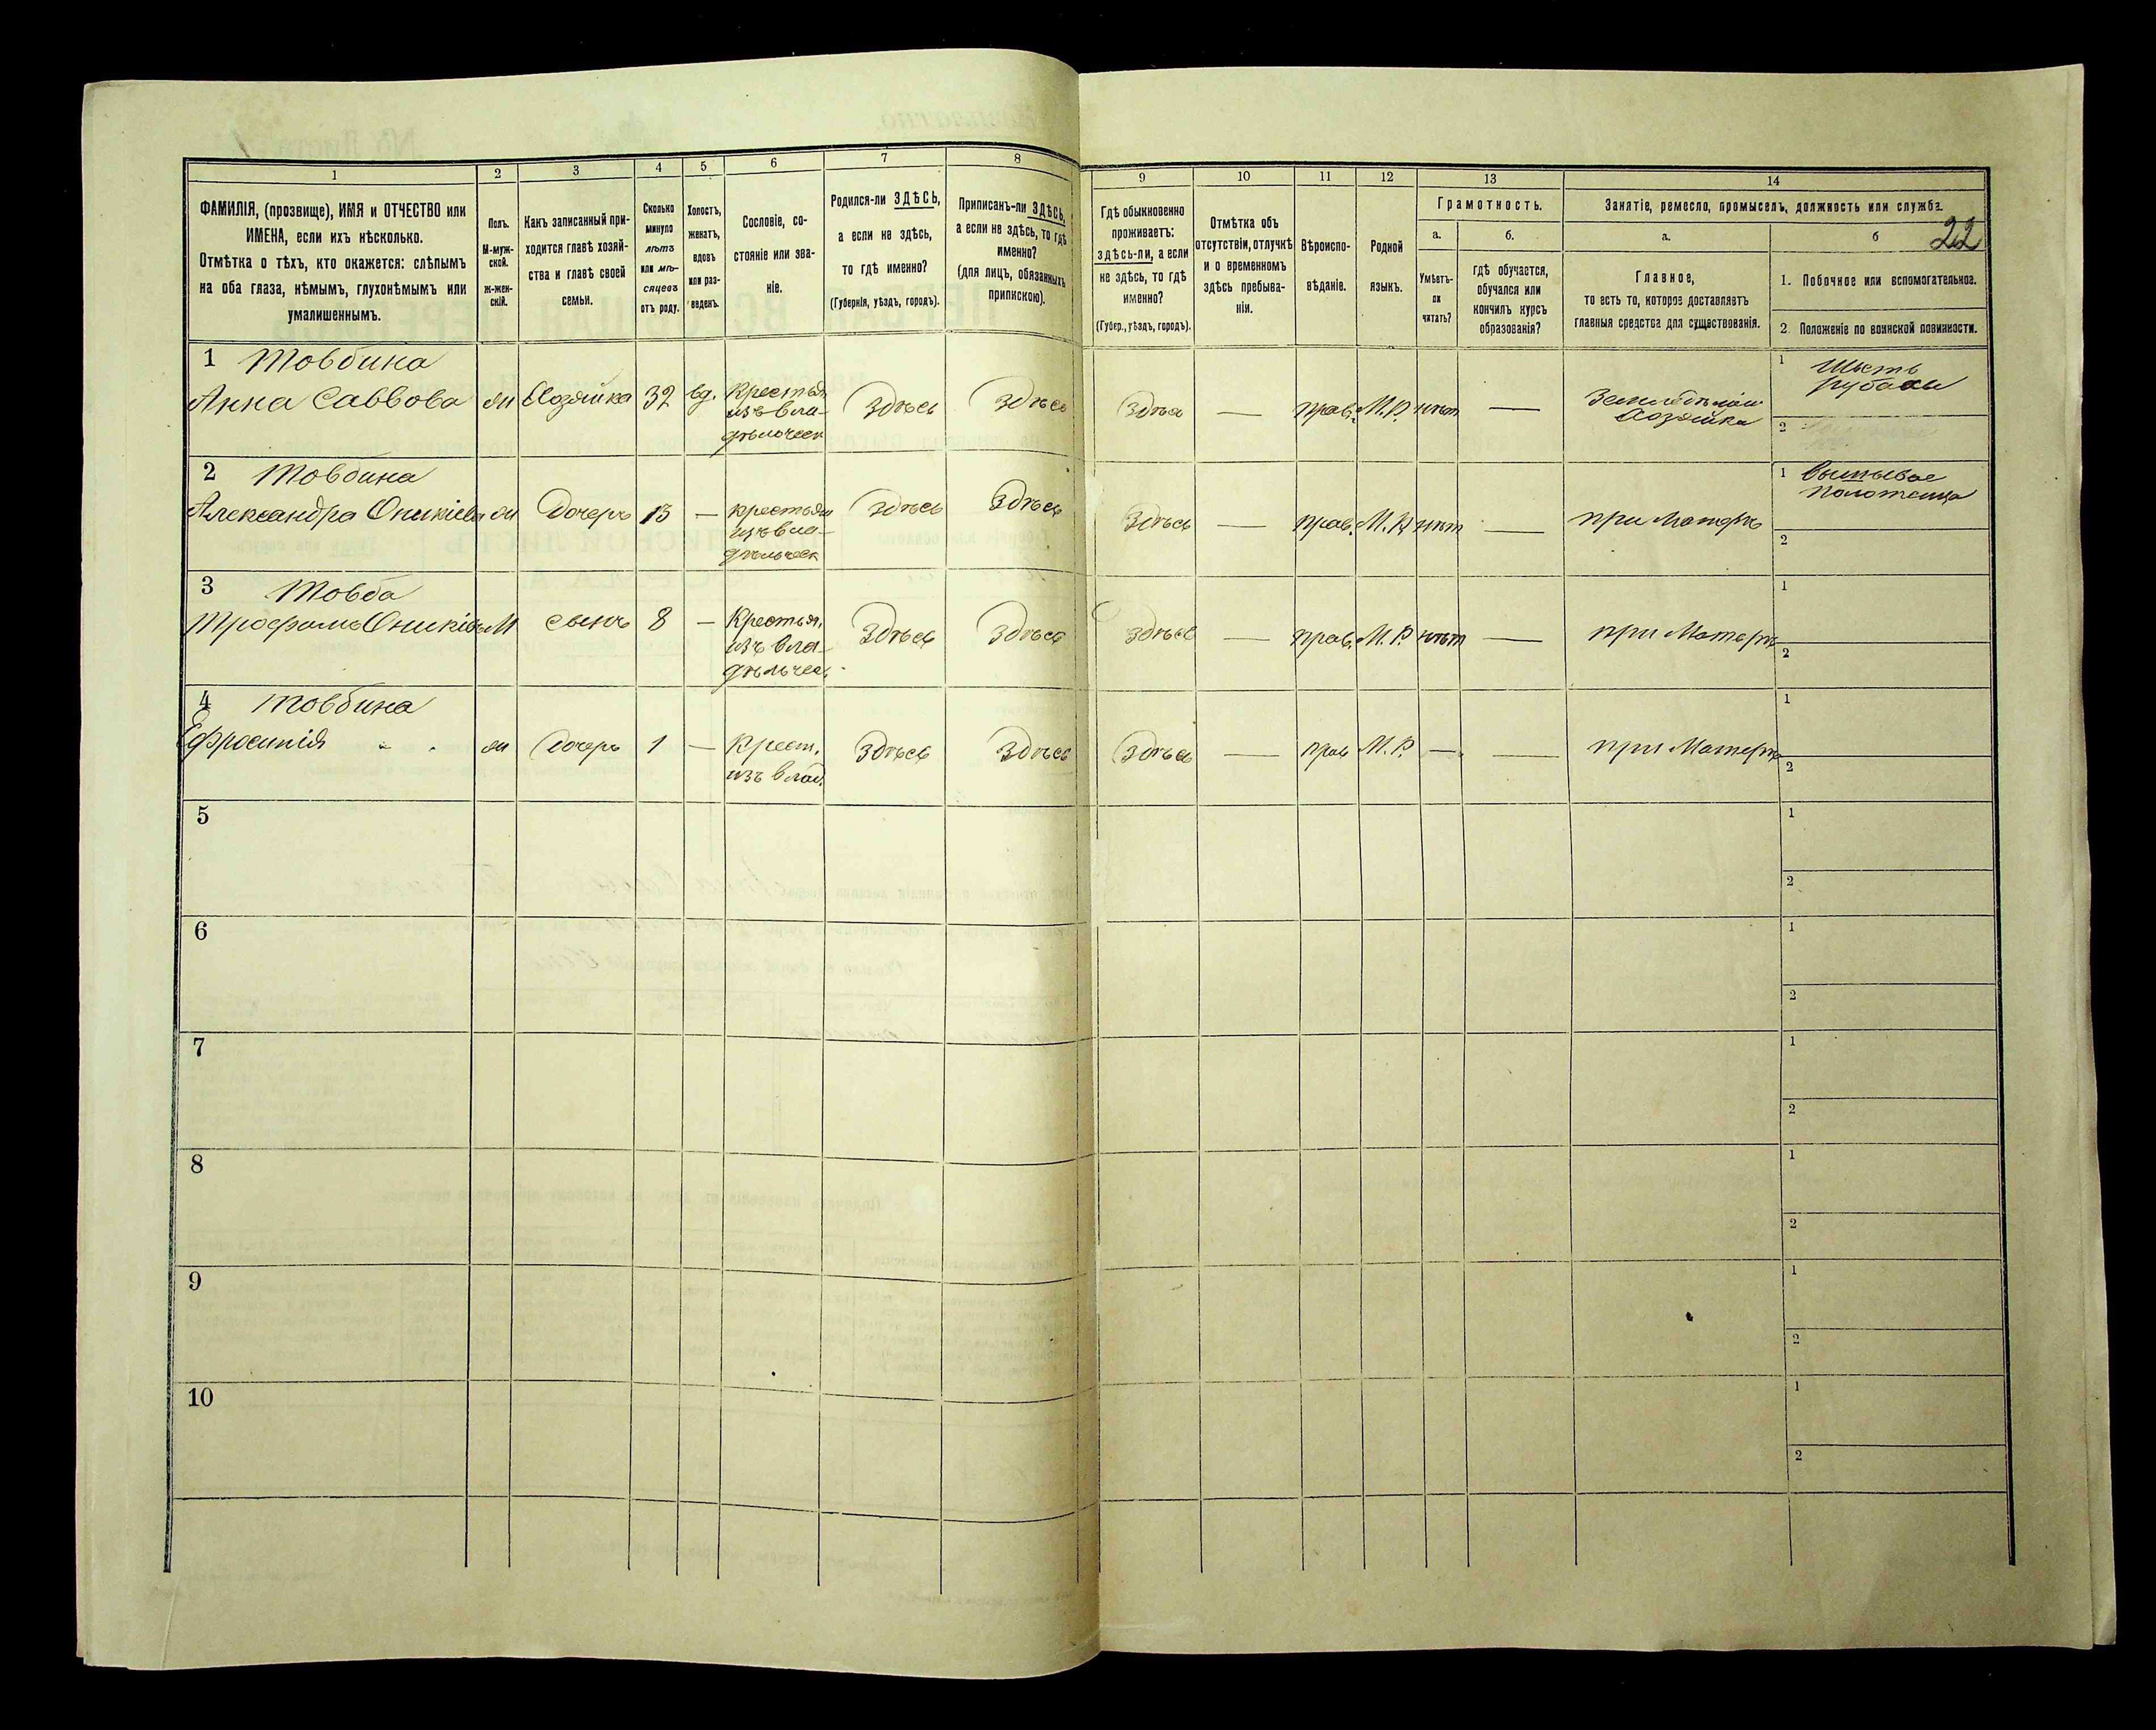 1
2
3
4
5
6
7
8
ФАМИЛІЯ, (прозвище), ИМЯ и ОТЧЕСТВО или
ИМЕНА, если ихъ нѣсколько.
Отмѣтка о тѣхъ, кто окажется: слѣпымъ
на оба глаза, нѣмымъ, глухонѣмымъ или
умалишеннымъ.
Полъ.
М-муж-
ской.
Ж-жен-
скій.
Какъ записанный при-
ходится главѣ хозяй-
ства и главѣ своей
семьи.
Сколько
минуло
лѣтъ
или мѣ-
сяцевъ
отъ роду.
Холостъ,
женатъ,
вдовъ
или раз-
веденъ.
Сословіе, со-
стояніе или зва-
ніе.
Родился-ли ЗДѢСЬ,
а если не здѣсь,
то гдѣ именно?
(Губернія, уѣздъ, городъ).
Приписанъ-ли ЗДѢСЬ,
а если не здѣсь, то гдѣ
именно?
(для лицъ, обязанныхъ
припискою).
9
10
11
12
13
14
Гдѣ обыкновенно
проживаетъ:
здѣсь-ли, а если
не здѣсь, то гдѣ
именно?
(Губер., уѣздъ, городъ).
Отмѣтка объ
отсутствіи, отлучкѣ
и о временномъ
здѣсь пребыва-
ніи.
Вѣроиспо-
вѣданіе.
Родной
языкъ.
Грамотность.
а.
Умѣетъ-
ли
читать?
б.
гдѣ обучается,
обучался или
кончилъ курсъ
образованія?
Занятіе, ремесло, промыселъ, должность или служба.
22
а.
Главное,
то есть то, которое доставляетъ
главныя средства для существованія.
б
1. Побочное или вспомогательное.
2 Положеніе по воинской повинности.
1 Товбина
Анна Саввова
ж
Хозяйка
32
вд.
Крестьян
изъ вла-
дѣльческ
Здѣсь
Здѣсь
Здѣсь
—
прав.
М.Р.
нѣт
—
Хозяйка
1
Шьетъ
рубахи
2
2 Товбина
Александра Оникіева
ж
Дочерь
13
—
крестьян
изъ вла-
дѣльческ
Здѣсь
Здѣсь
Здѣсь
—
прав.
М.Р.
нѣт
—
при Матерѣ
1
2
3 Товба
Трофимъ Оникіевъ
М
сынъ
8
—
Крестьян.
изъ вла-
дѣльчес.
Здѣсь
Здѣсь
Здѣсь
—
прав.
М.Р.
нѣт
—
при Матерѣ
1
2
4 Товбина
Ефросинія " "
ж
Дочерь
1
—
Крест.
изъ влад.
Здѣсь
Здѣсь
Здѣсь
—
прав
М.Р.
—
—
при Матерѣ
1
2
5
1
2
6
1
2
7
1
2
8
1
2
9
1
2
10
1
2